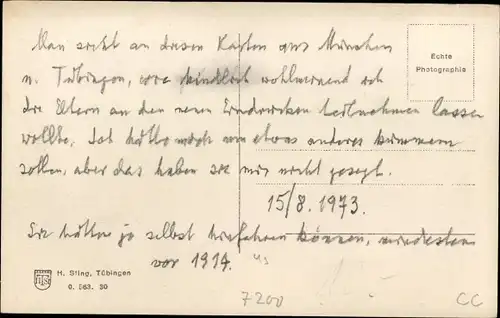 Man sieht an diesen Karten aus München
u. Tübingen, wie kindlich wohlmeinend ich
die Eltern an den neuen Eindrücken teilnehmen lassen
wollte. Ich hätte mich um etwas anderes kümmern
sollen, aber das haben sie mir nicht gesagt.
15/8. 1973.
Sie hätten ja selbst hinfahren können, mindestens
vor 1914.
Echte
Photographie
H. Sting, Tübingen
0. 563. 30
7200
CC